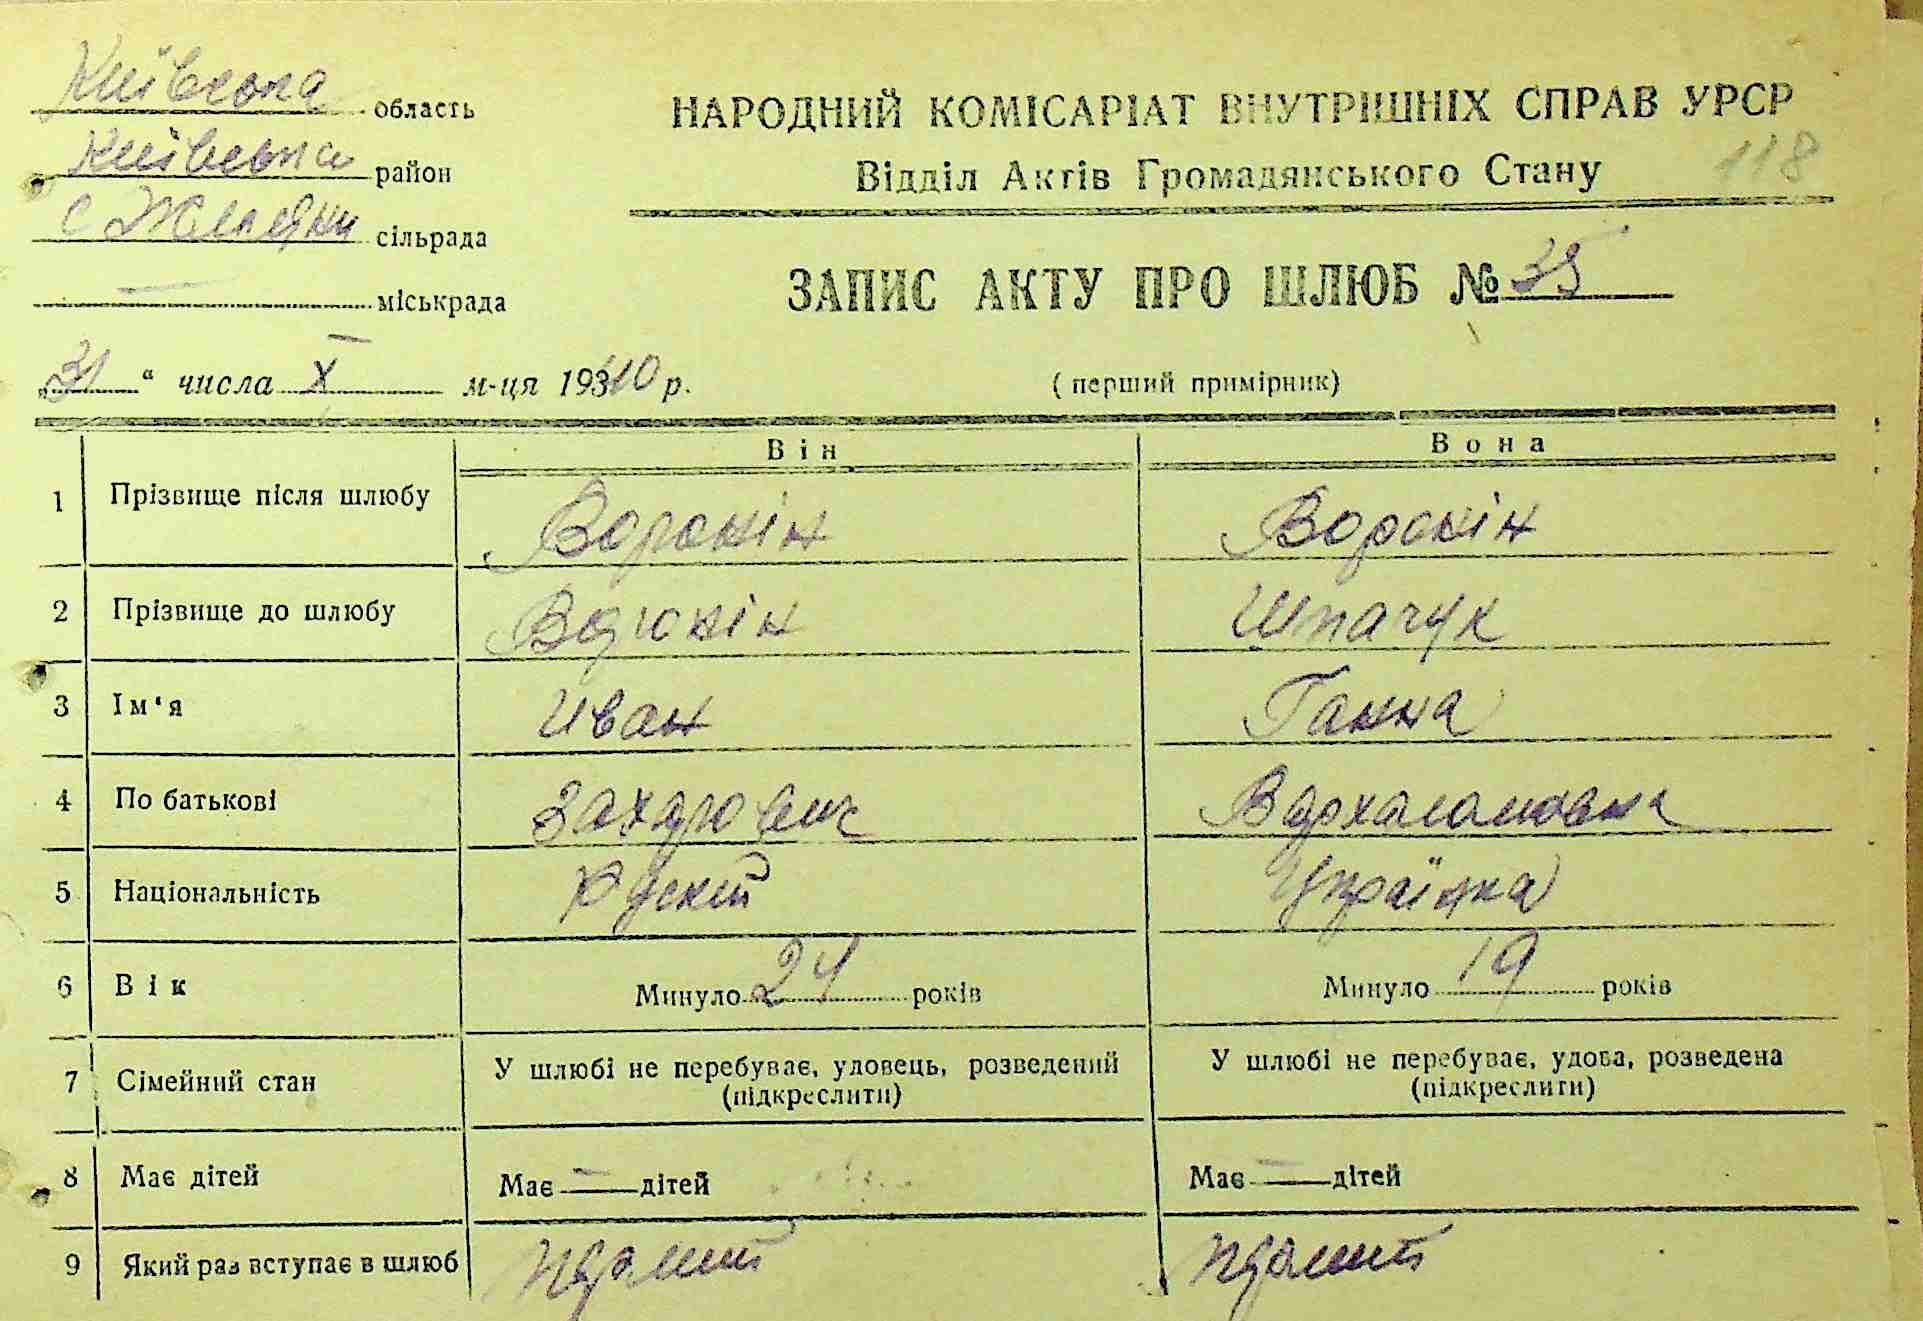 Київська область
Київська район
с Жиляни сільрада
— міськрада
НАРОДНИЙ КОМІСАРІАТ ВНУТРІШНІХ СПРАВ УРСР
118
Відділ Актів Громадянського Стану
ЗАПИС АКТУ ПРО ШЛЮБ № 35
„31" числа X м-ця 1940 р.
(перший примірник)
Він Вона
1 Прізвище після шлюбу Воронін Воронін
2 Прізвище до шлюбу Воронін Шпачук
3 Ім'я Иван Ганна
4 По батькові Захарович
5 Національність Руский Українка
6 Вік Минуло 24 років Минуло 19 років
7 Сімейний стан У шлюбі не перебуває, удовець, розведений (підкреслити) У шлюбі не перебуває, удова, розведена (підкреслити)
8 Має дітей Має — дітей Має — дітей
9 Який раз вступає в шлюб